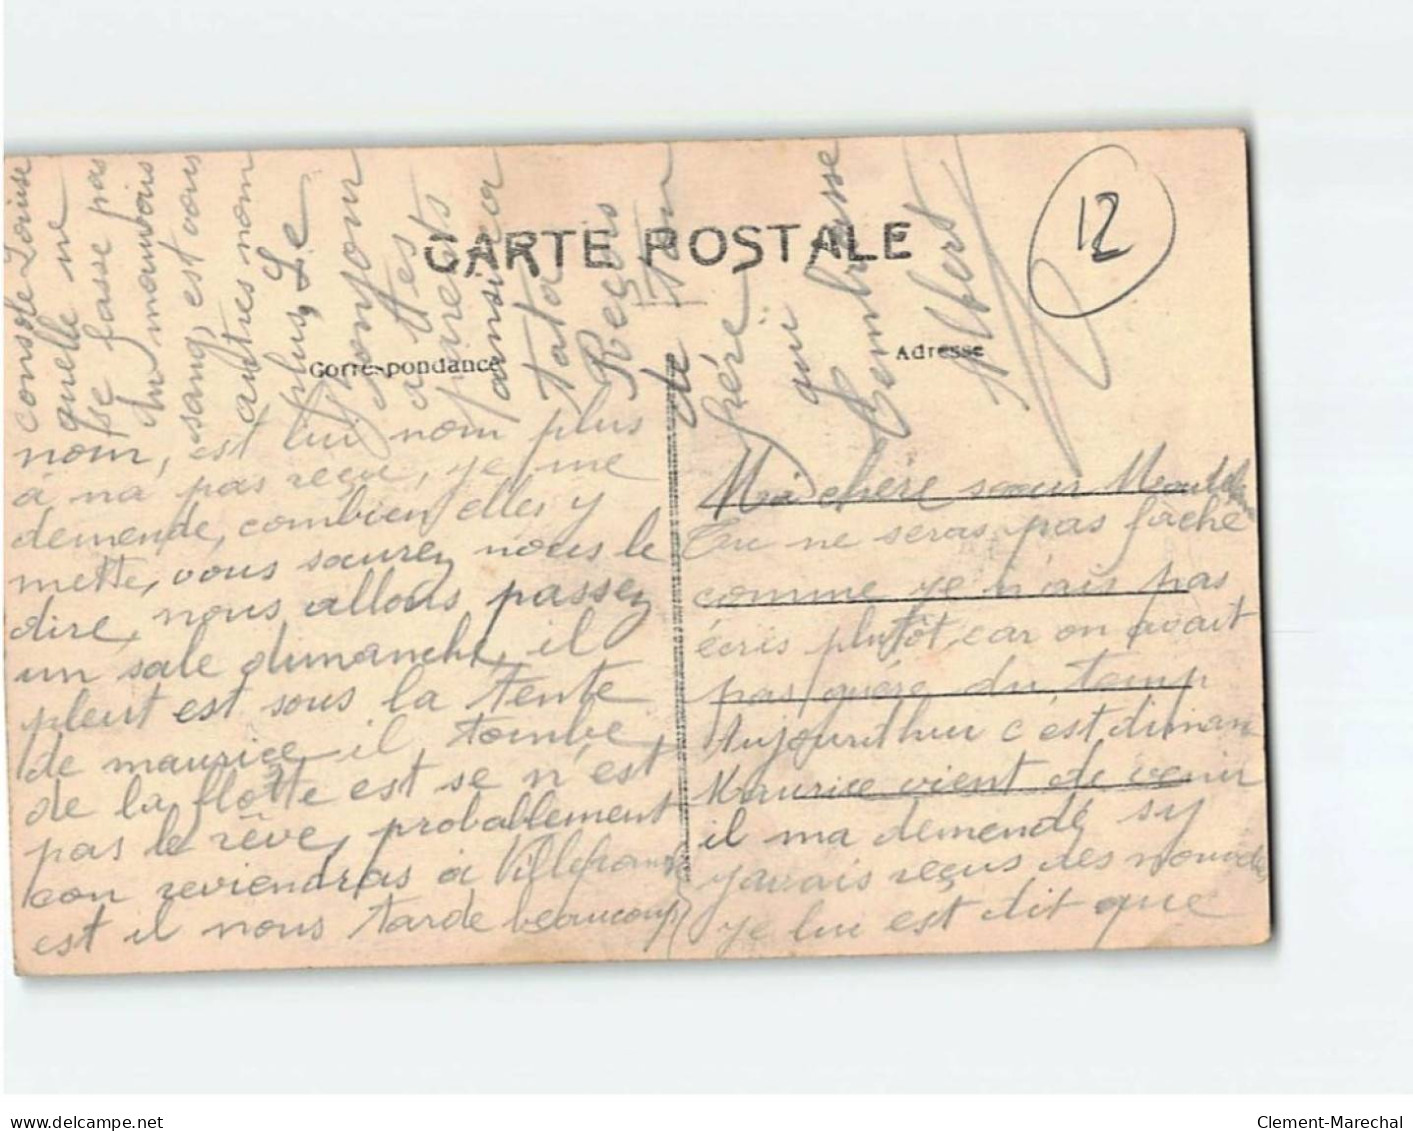 CARTE POSTALE
12
Correspondance
Adresse
Ma chère sœur
Tu ne seras pas fâché
comme je n'ais pas
écris plutôt, car on avait
pas guére du temp
Aujourdhui c'est diman
Maurice vient de venir
il ma demendé sy
javais reçus des nouvelles
je lui est dit que
nom, est lui nom plus
à na pas reçu, je me
demende, combien elles y
mette, vous saurez nous le
dire, nous allons passez
un sale dimanche, il
pleut est sous la tente
de maurice il, tombe,
de la flotte est se n'est
pas le rêve, probablement
con reviendras à Villefranche
est il nous tarde beaucoup
console Louise
quelle ne
se fasse pas
du mauvais
sang, est vous
autres nom
plus, Le
bonjour
a tes
parents
ainsi ca
tata
Reçois
de ton
frére
qui
t'embrasse
Albert
© delcampe.net
Clement-Marechal